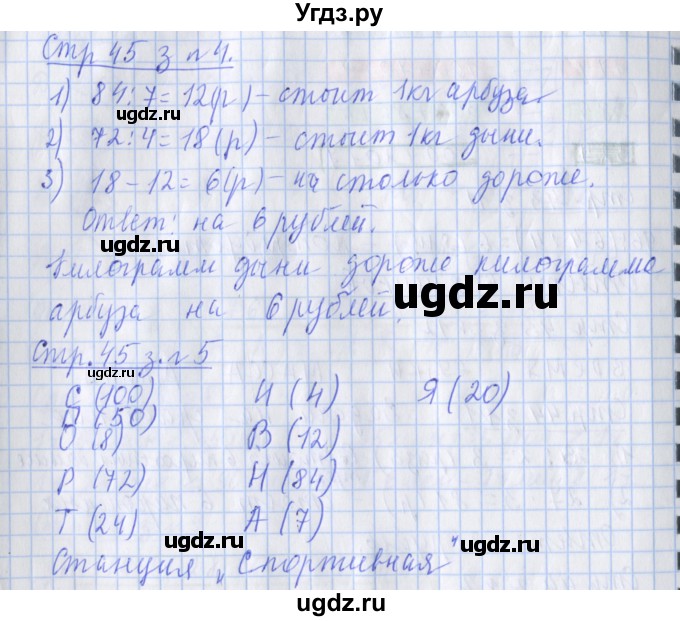 Угдз.ру
Стр 45 з № 4.
1) 84:7=12(р) – стоит 1кг арбуза.
2) 72:4=18(р) – стоит 1кг дыни.
3) 18-12=6(р) – на столько дороже.
Ответ: на 6 рублей.
ugdz.ru
Килограмм дыни дороже килограмма
арбуза на 6 рублей.
ugdz.ru
Стр. 45 з. № 5
ugdz.ru
С (100) И (4) Я (20)
П (50)
О (8) В (12)
ugdz.ru
Р (72) Н (84)
Т (24) А (7)
ugdz.ru ugdz.ru ugdz.ru
Станция „Спортивная"
ugdz.ru